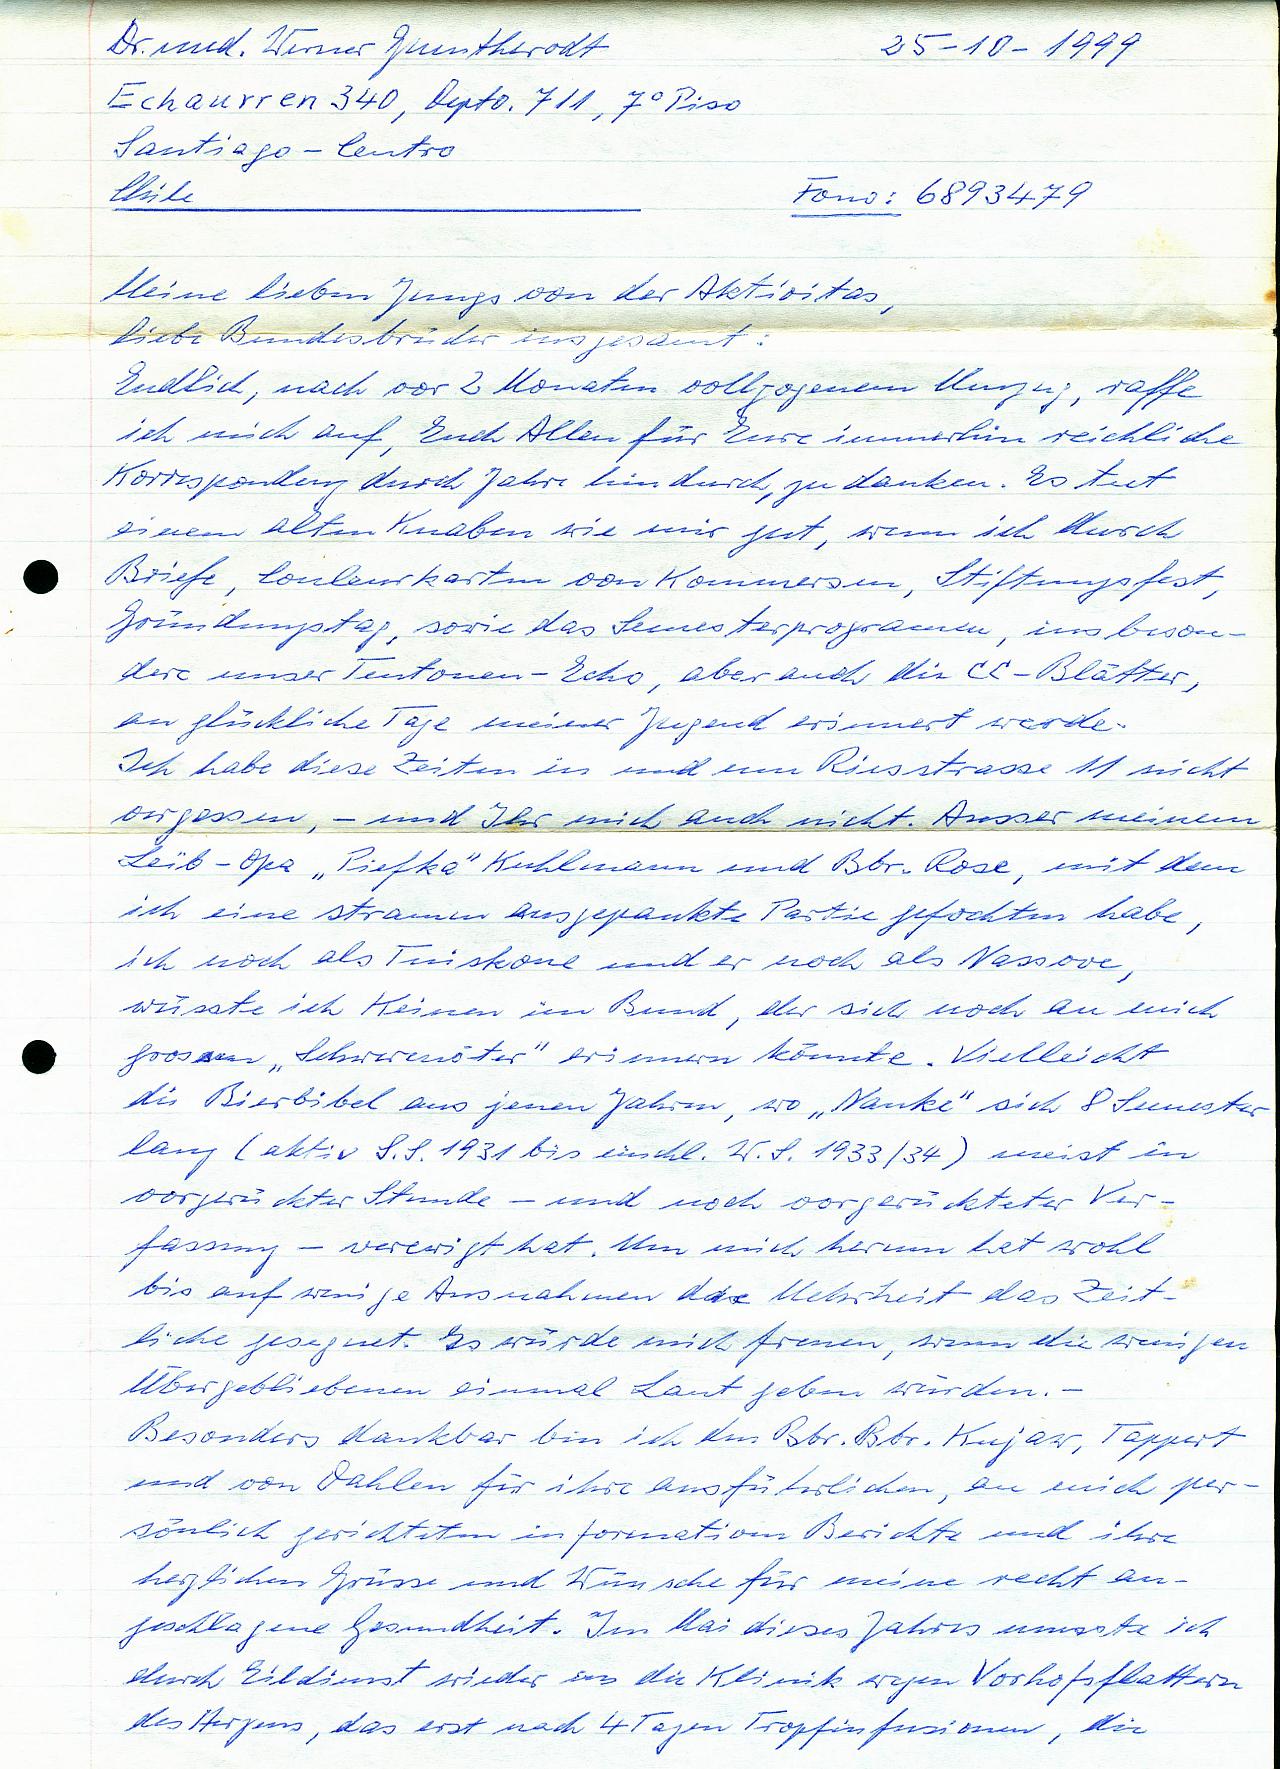 Dr. med. Werner Guntherodt 25-10-1999
Echaurren 340, Depto. 711, 7° Piso
Santiago - Centro
Chile Fono: 6893479
Meine lieben Jungs von der Aktivitas,
liebe Bundesbrüder insgesamt:
Endlich, nach vor 2 Monaten vollzogenem Umzug, raffe
ich mich auf, Euch Allen für Eure immerhin reichliche
Korrespondenz durch Jahre hindurch, zu danken. Es tut
einem alten Knaben wie mir gut, wenn ich durch
Briefe, Couleurkarten von Kommersen, Stiftungsfest,
Gründungstag, sowie das Semesterprogramm, insbeson-
dere unser Teutonen-Echo, aber auch die CC-Blätter,
an glückliche Tage meiner Jugend erinnert werde.
Ich habe diese Zeiten in und um Riesstrasse 11 nicht
vergessen, - und Ihr mich auch nicht. Ausser meinem
Leib-Opa „Piefka" Kuhlmann und Bbr. Rose, mit dem
ich eine stramm ausgepaukte Partie gefochten habe,
ich noch als Tuiskone und er noch als Nassove,
wüsste ich Keinen im Bund, der sich noch an mich
grossen „Schwerenöter" erinnern könnte. Vielleicht
die Bierbibel aus jenen Jahren, wo „Nauke" sich 8 Semester
lang (aktiv S.S. 1931 bis einschl. W.S. 1933/34) meist in
vorgerückter Stunde - und noch vorgerückteter Ver-
fassung - verewigt hat. Um mich herum hat wohl
bis auf wenige Ausnahmen die Mehrheit das Zeit-
liche gesegnet. Es würde mich freuen, wenn die wenigen
Übergebliebenen einmal Laut geben würden. -
Besonders dankbar bin ich den Bbr. Bbr. Kujaw, Tappert
und von Dahlen für ihre ausführlichen, an mich per-
sönlich gerichteten information Berichte und ihre
herzlichen Grüsse und Wünsche für meine recht an-
geschlagene Gesundheit. Im Mai dieses Jahres musste ich
durch Eildienst wieder in die Klinik wegen Vorhofsflattern
des Herzens, das erst nach 4 Tagen Tropfinfusionen, die